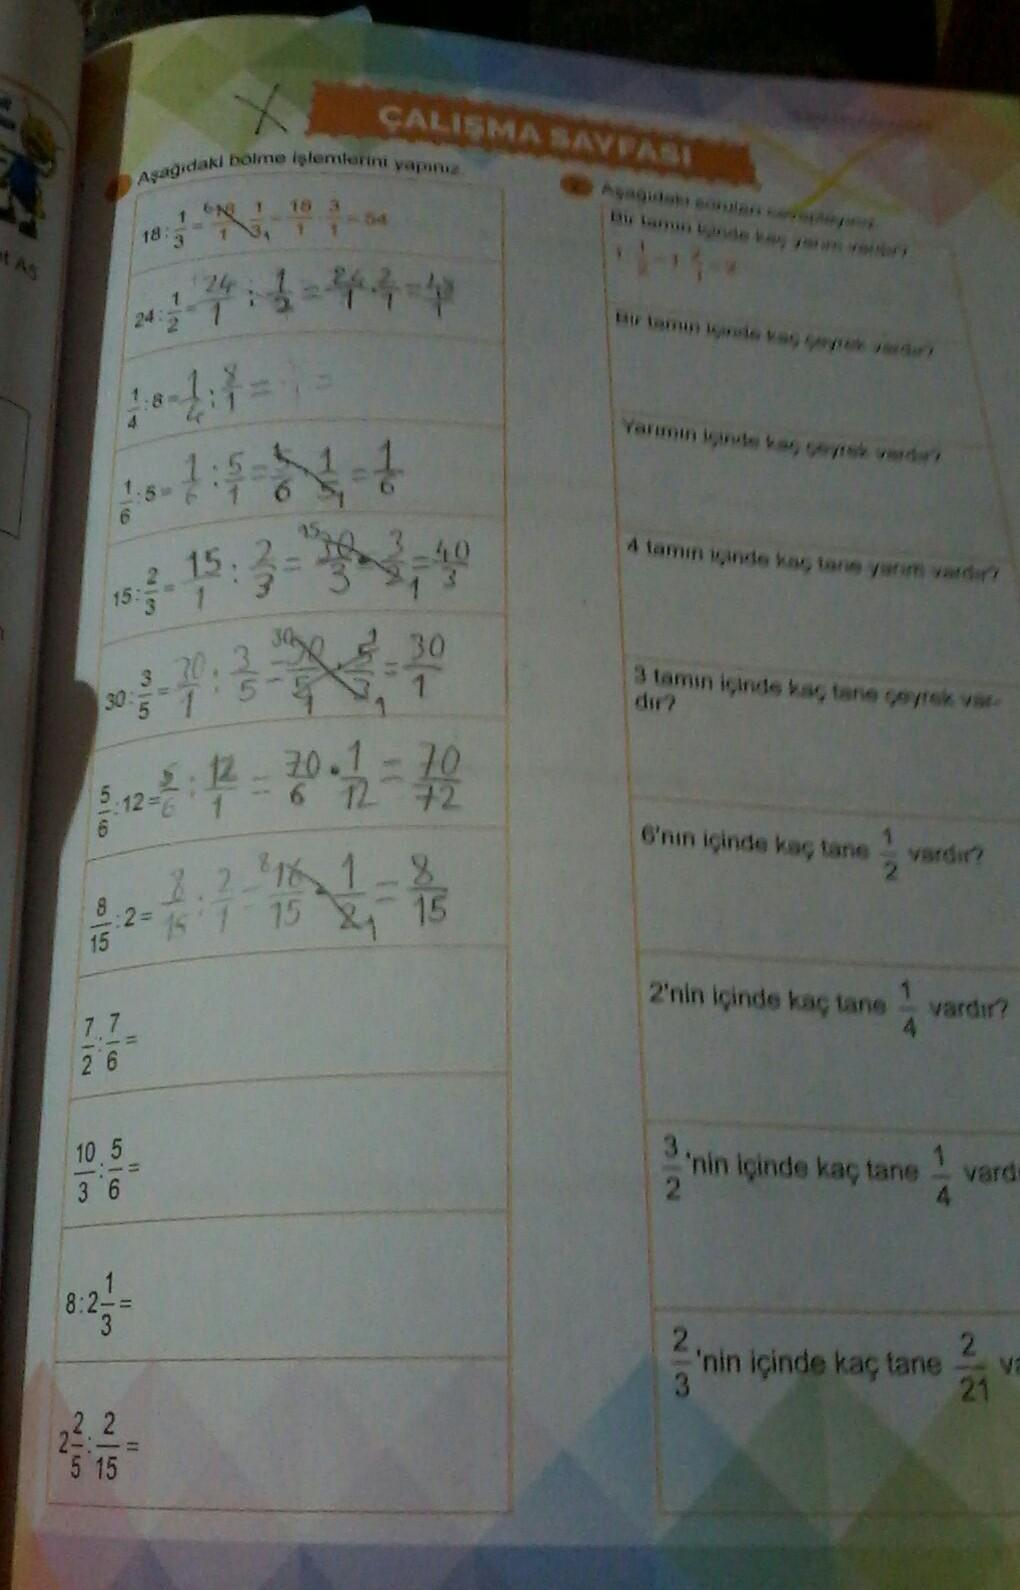 ÇALIŞMA SAYFASI
Aşağıdaki bölme işlemlerini yapınız.
18 : 1/3 = 18/1 1/3 = 18/1 · 3/1 = 54
24 : 1/2 = 24/1 : 1/2 = 24/1 · 2/1 = 48/1
1/4 : 8 = 1/4 : 8/1 =
1/6 : 5 = 1/6 : 5/1 = 5/6 · 1/5 = 1/6
15 : 2/3 = 15/1 : 2/3 = 30/3 · 3/2 = 40/3
30 : 3/5 = 30/1 : 3/5 = 90/5 · 5/3 = 30/1
5/6 : 12 = 5/6 : 12/1 = 70/6 · 1/12 = 70/72
8/15 : 2 = 8/15 : 2/1 = 16/15 · 1/2 = 8/15
7/2 : 7/6 =
10/3 : 5/6 =
8 : 2 1/3 =
2 2/5 : 2/15 =
Aşağıdaki soruları cevaplayınız.
Bir tamın içinde kaç yarım vardır?
Bir tamın içinde kaç çeyrek vardır?
Yarımın içinde kaç çeyrek vardır?
4 tamın içinde kaç tane yarım vardır?
3 tamın içinde kaç tane çeyrek var-
dır?
6'nın içinde kaç tane 1/2 vardır?
2'nin içinde kaç tane 1/4 vardır?
3/2 'nin içinde kaç tane 1/4 vard
2/3 'nin içinde kaç tane 2/21 va